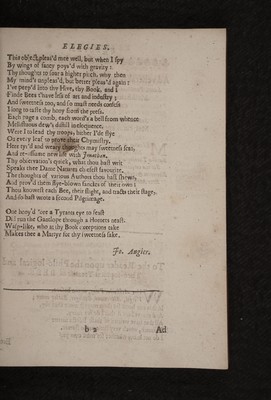 ELEGIES.
This object pleas'd mee well, but when I spy
By wings of fancy poys'd with gravity:
Thy thoughts to soar a higher pitch, why then
My mind's unpleas'd, but better pleas'd again:
I've peep'd into thy Hive, thy Book, and I
Finde Bees t'have less of art and industry;
And sweetness too, and so must needs confess
I long to taste thy hony from the press.
Each page a comb, each word's a bell from whence
Mellifluous dew's distill'd in eloquence.
Were I to lead thy troops, hither I'de flye
On every leaf to prove their Chymistry,
Here tyr'd and weary thoughts may sweetness
And re-assume new life with
Thy observation's quick, what thou hast writ
Speaks thee Dame Natures chiefest favourite,
The thoughts of various Authors thou hast shewn,
And prov'd them flye-blown fancies of their own:
Thou knowest each Bee, their flight, and tracts their stage,
And so hast wrote a second Pilgrimage.
One hony'd 'ore a Tyrants eye to feast
Did run the Gantlope through a Hornets neast.
Wasp-like, who at thy Book exceptions take
Makes thee a Martyr for thy sweetness sake.
Jo. Angier.
b 2
Ad